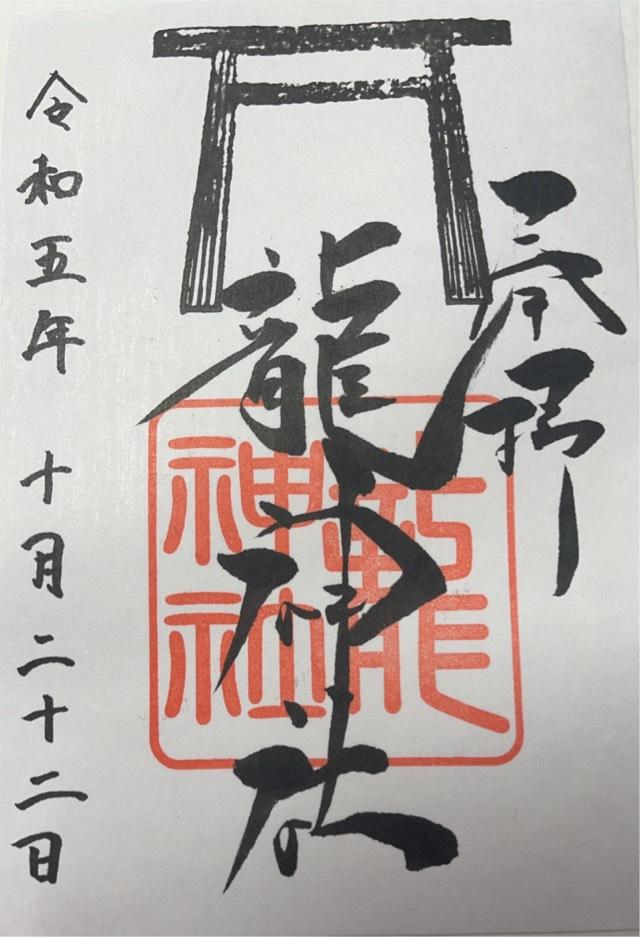 奉拝
龍神社
龍神社
令和五年 十月二十二日